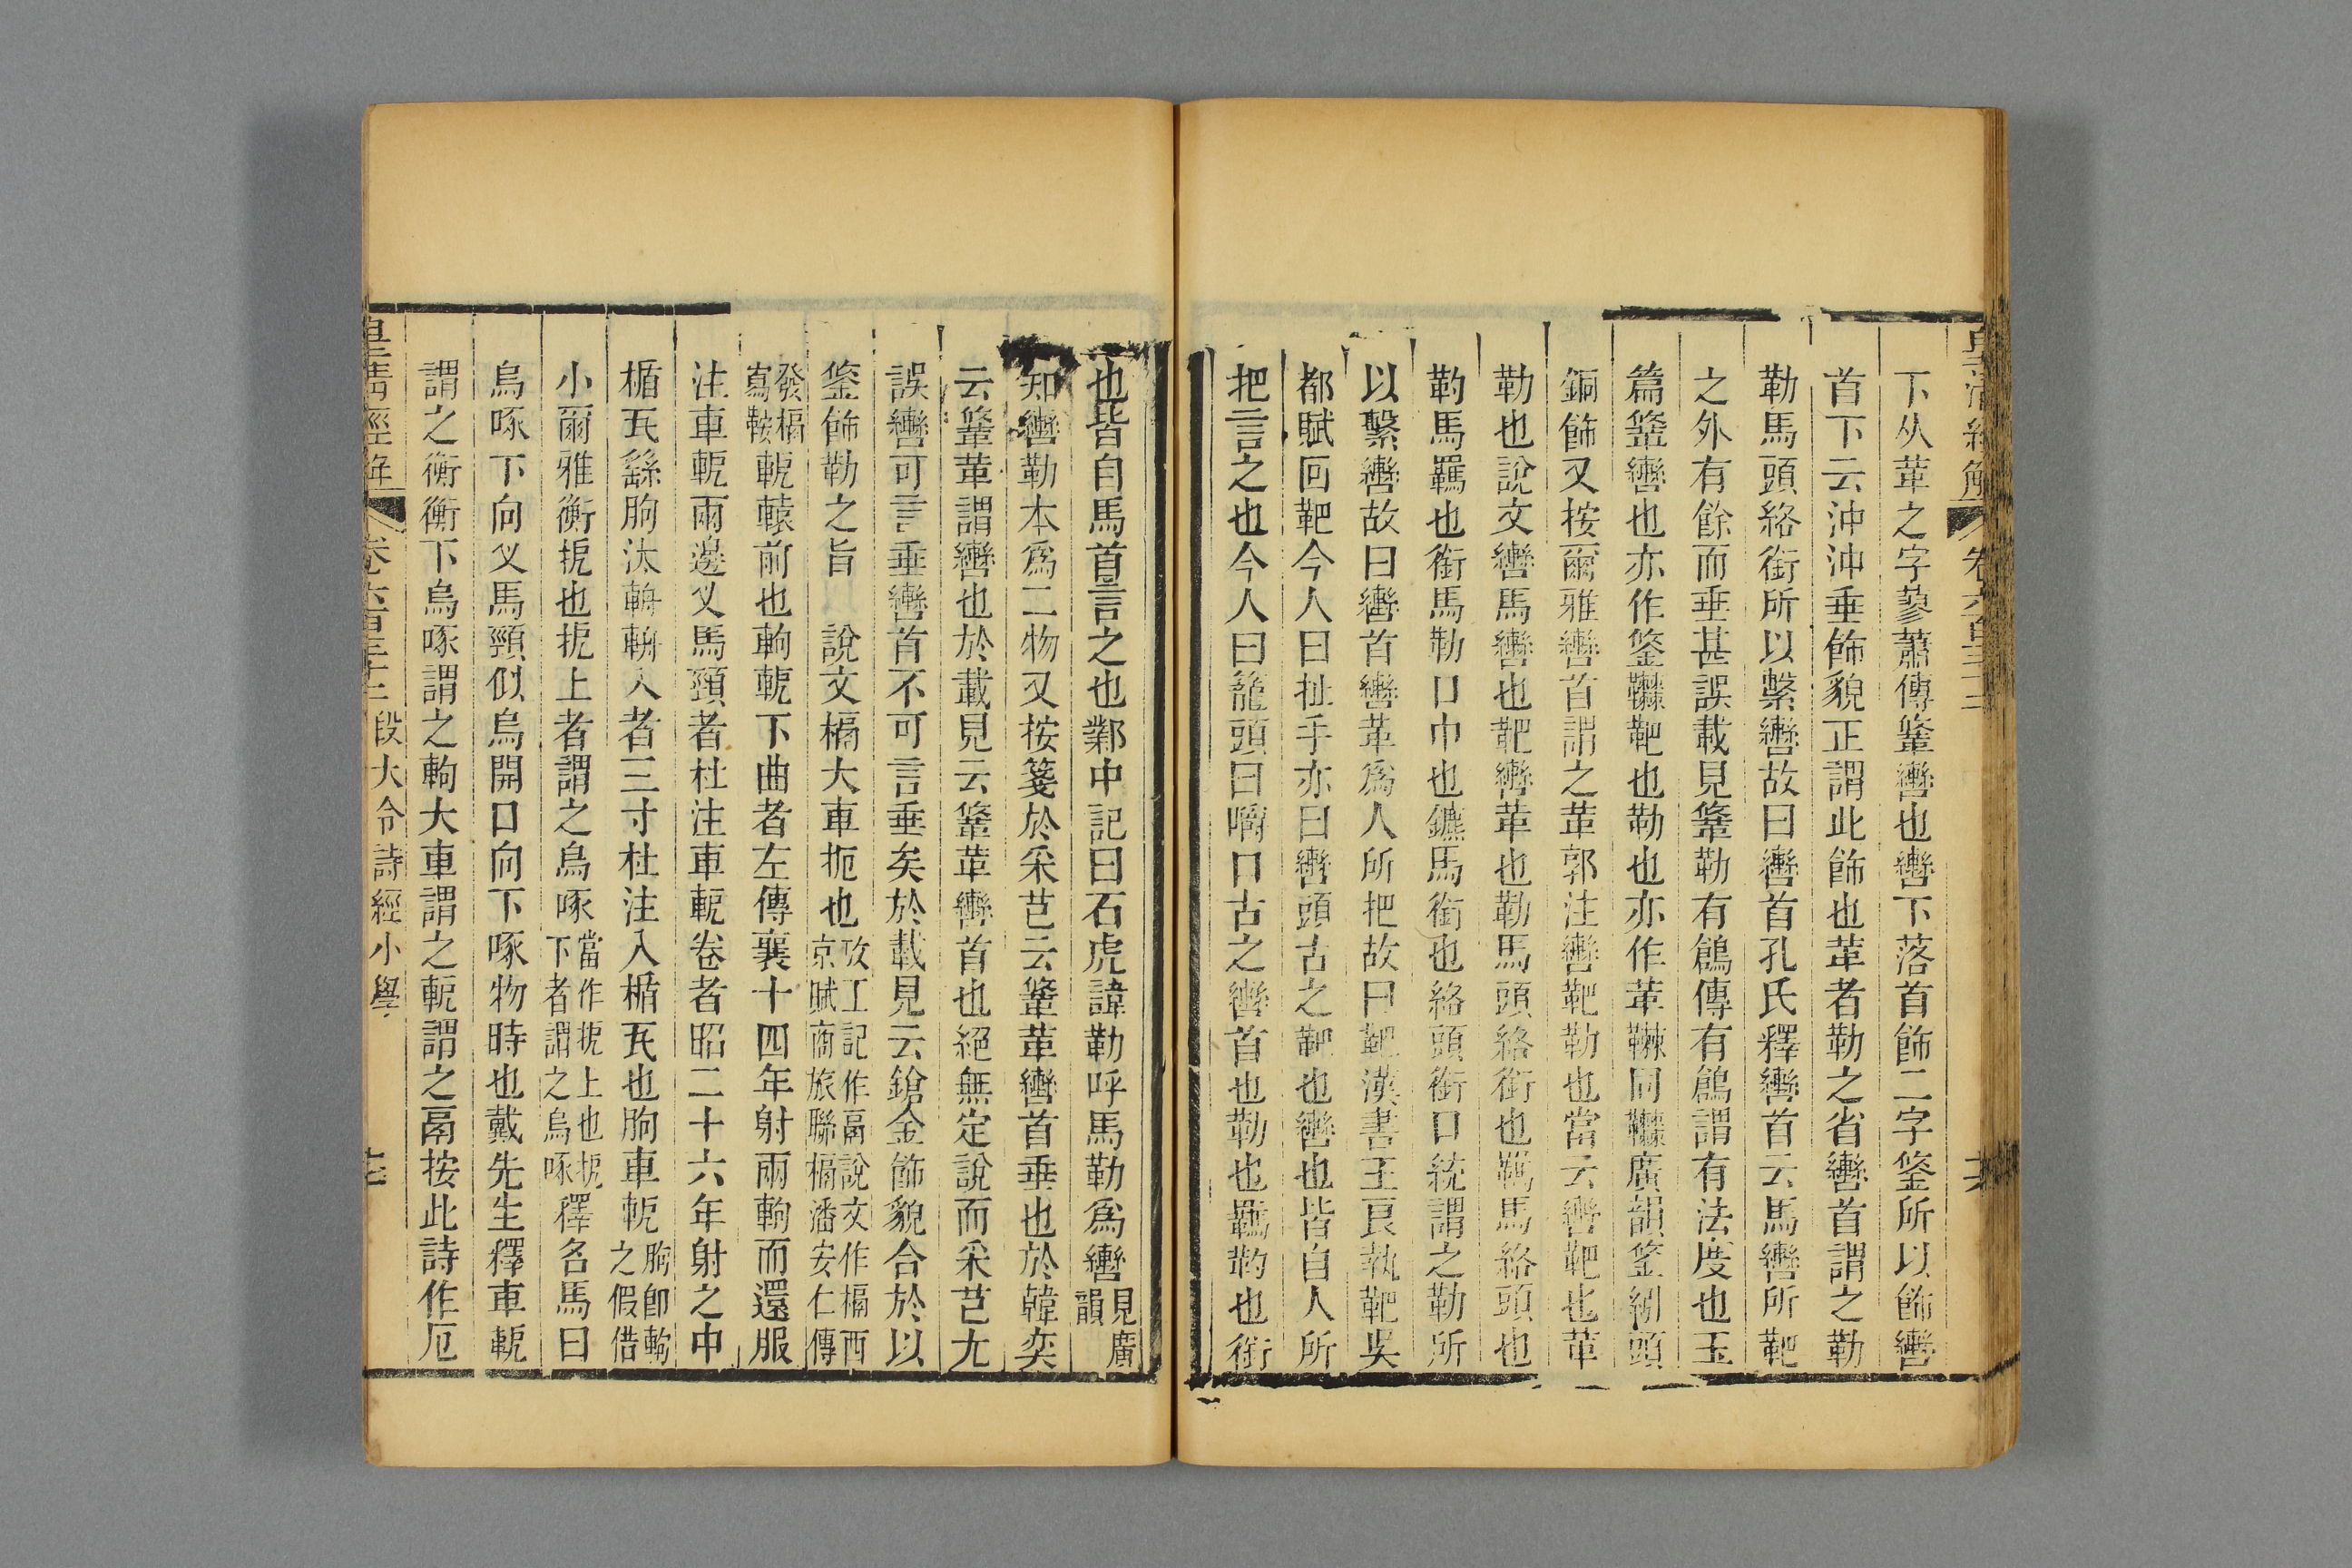 皇清經解 卷六百三十二 大
下从革之字蓼蕭傳鞗轡也轡下落首飾二字鋚所以飾轡
首下云沖沖垂飾貌正謂此飾也革者勒之省轡首謂之勒
勒馬頭絡銜所以繫轡故曰轡首孔氏釋轡首云馬轡所靶
之外有餘而垂甚誤載見鞗勒有鶬傳有鶬謂有法度也玉
篇鞗轡也亦作鋚鞿靶也勒也亦作革鞿同鞿廣韻鋚紖頭
銅飾又按爾雅轡首謂之革郭注轡靶勒也當云轡靶也革
勒也說文轡馬轡也靶轡革也勒馬頭絡銜也羈馬絡頭也
靮馬羈也銜馬勒口中也鑣馬銜也絡頭銜口統謂之勒所
以繫轡故曰轡首轡革爲人所把故曰靶漢書王良執靶吳
都賦回靶今人曰扯手亦曰轡頭古之靶也轡也皆自人所
把言之也今人曰籠頭曰嚼口古之轡首也勒也羈靮也銜
也皆自馬首言之也鄴中記曰石虎諱勒呼馬勒爲轡見廣韻
知轡勒本爲二物又按箋於采芑云鞗革轡首垂也於韓奕
云鞗革謂轡也於載見云鞗革轡首也絕無定說而采芑尤
誤轡可言垂轡首不可言垂矣於載見云鎗金飾貌合於以
鋚飾勒之旨 說文槅大車扼也攷工記作鬲說文作槅西京賦商旅聯槅潘安仁傳
發槅寫鞍軶轅前也軥軶下曲者左傳襄十四年射兩軥而還服
注車軶兩邊叉馬頸者杜注車軶卷者昭二十六年射之中
楯瓦繇朐汰輈匕入者三寸杜注入楯瓦也朐車軶朐卽軥之假借
小爾雅衡扼也扼上者謂之烏啄當作扼上也扼下者謂之烏啄釋名馬曰
烏啄下向叉馬頸似烏開口向下啄物時也戴先生釋車軶
謂之衡衡下烏啄謂之軥大車謂之軶謂之鬲按此詩作厄
皇清經解 卷六百三十二 段大令詩經小學 七